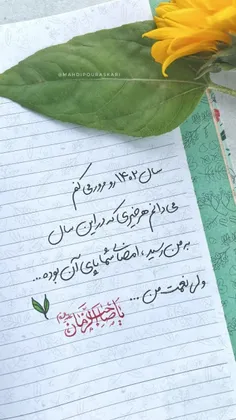 @MAHDIPOURASKARI
سال ۱۴۰۲ رو مرور می کنم
می دانم هر خیری که در این سال
به من رسید ، امضای شما پای آن بوده ...
ولی نعمت من ...
یا صاحب الزمان